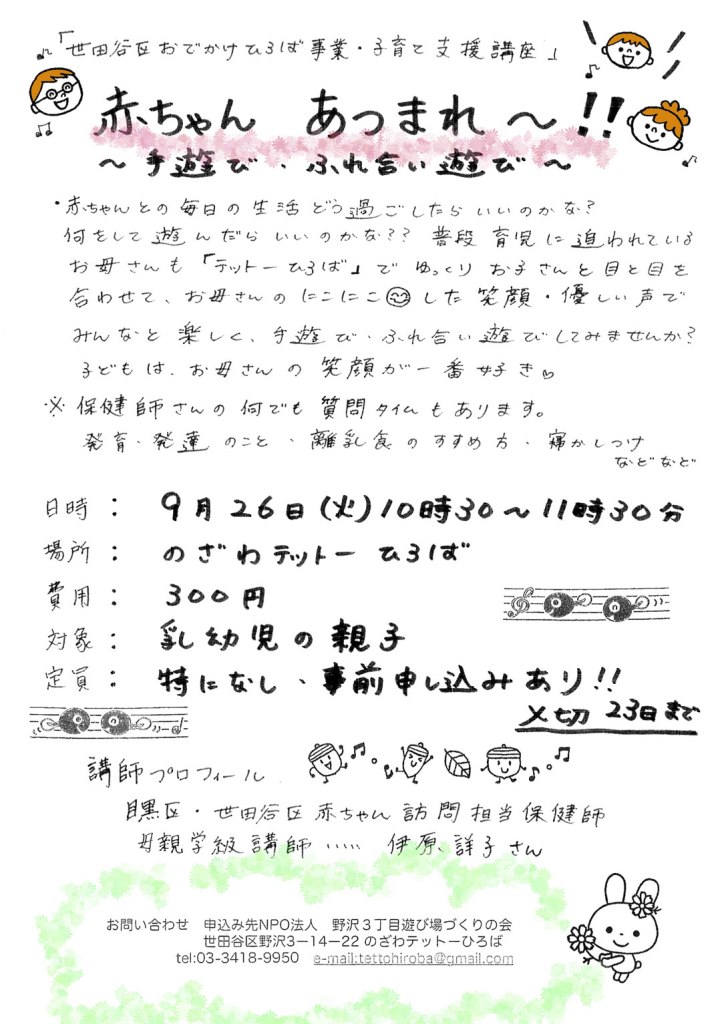 「世田谷区おでかけひろば事業・子育て支援講座」
赤ちゃん あつまれ～!!
～手遊び、ふれ合い遊び～
・赤ちゃんとの毎日の生活どう過ごしたらいいのかな?
何をして遊んだらいいのかな?? 普段育児に追われている
お母さんも「テットーひろば」でゆっくりお子さんと目と目を
合わせて、お母さんのにこにこした笑顔・優しい声で
みんなと楽しく、手遊び・ふれ合い遊びしてみませんか?
子どもは、お母さんの笑顔が一番好き♡
※保健師さんの何でも質問タイムもあります。
発育・発達のこと・離乳食のすすめ方・寝かしつけ
などなど
日時： 9月26日(火)10時30～11時30分
場所： のざわテットーひろば
費用： 300円
対象： 乳幼児の親子
定員： 特になし、事前申し込みあり!!
〆切 23日まで
講師プロフィール
目黒区・世田谷区赤ちゃん訪問担当保健師
母親学級講師…… 伊原詳子さん
お問い合わせ 申込み先NPO法人 野沢３丁目遊び場づくりの会
世田谷区野沢3ー14ー22 のざわテットーひろば
tel:03-3418-9950 e-mail:tettohiroba@gmail.com